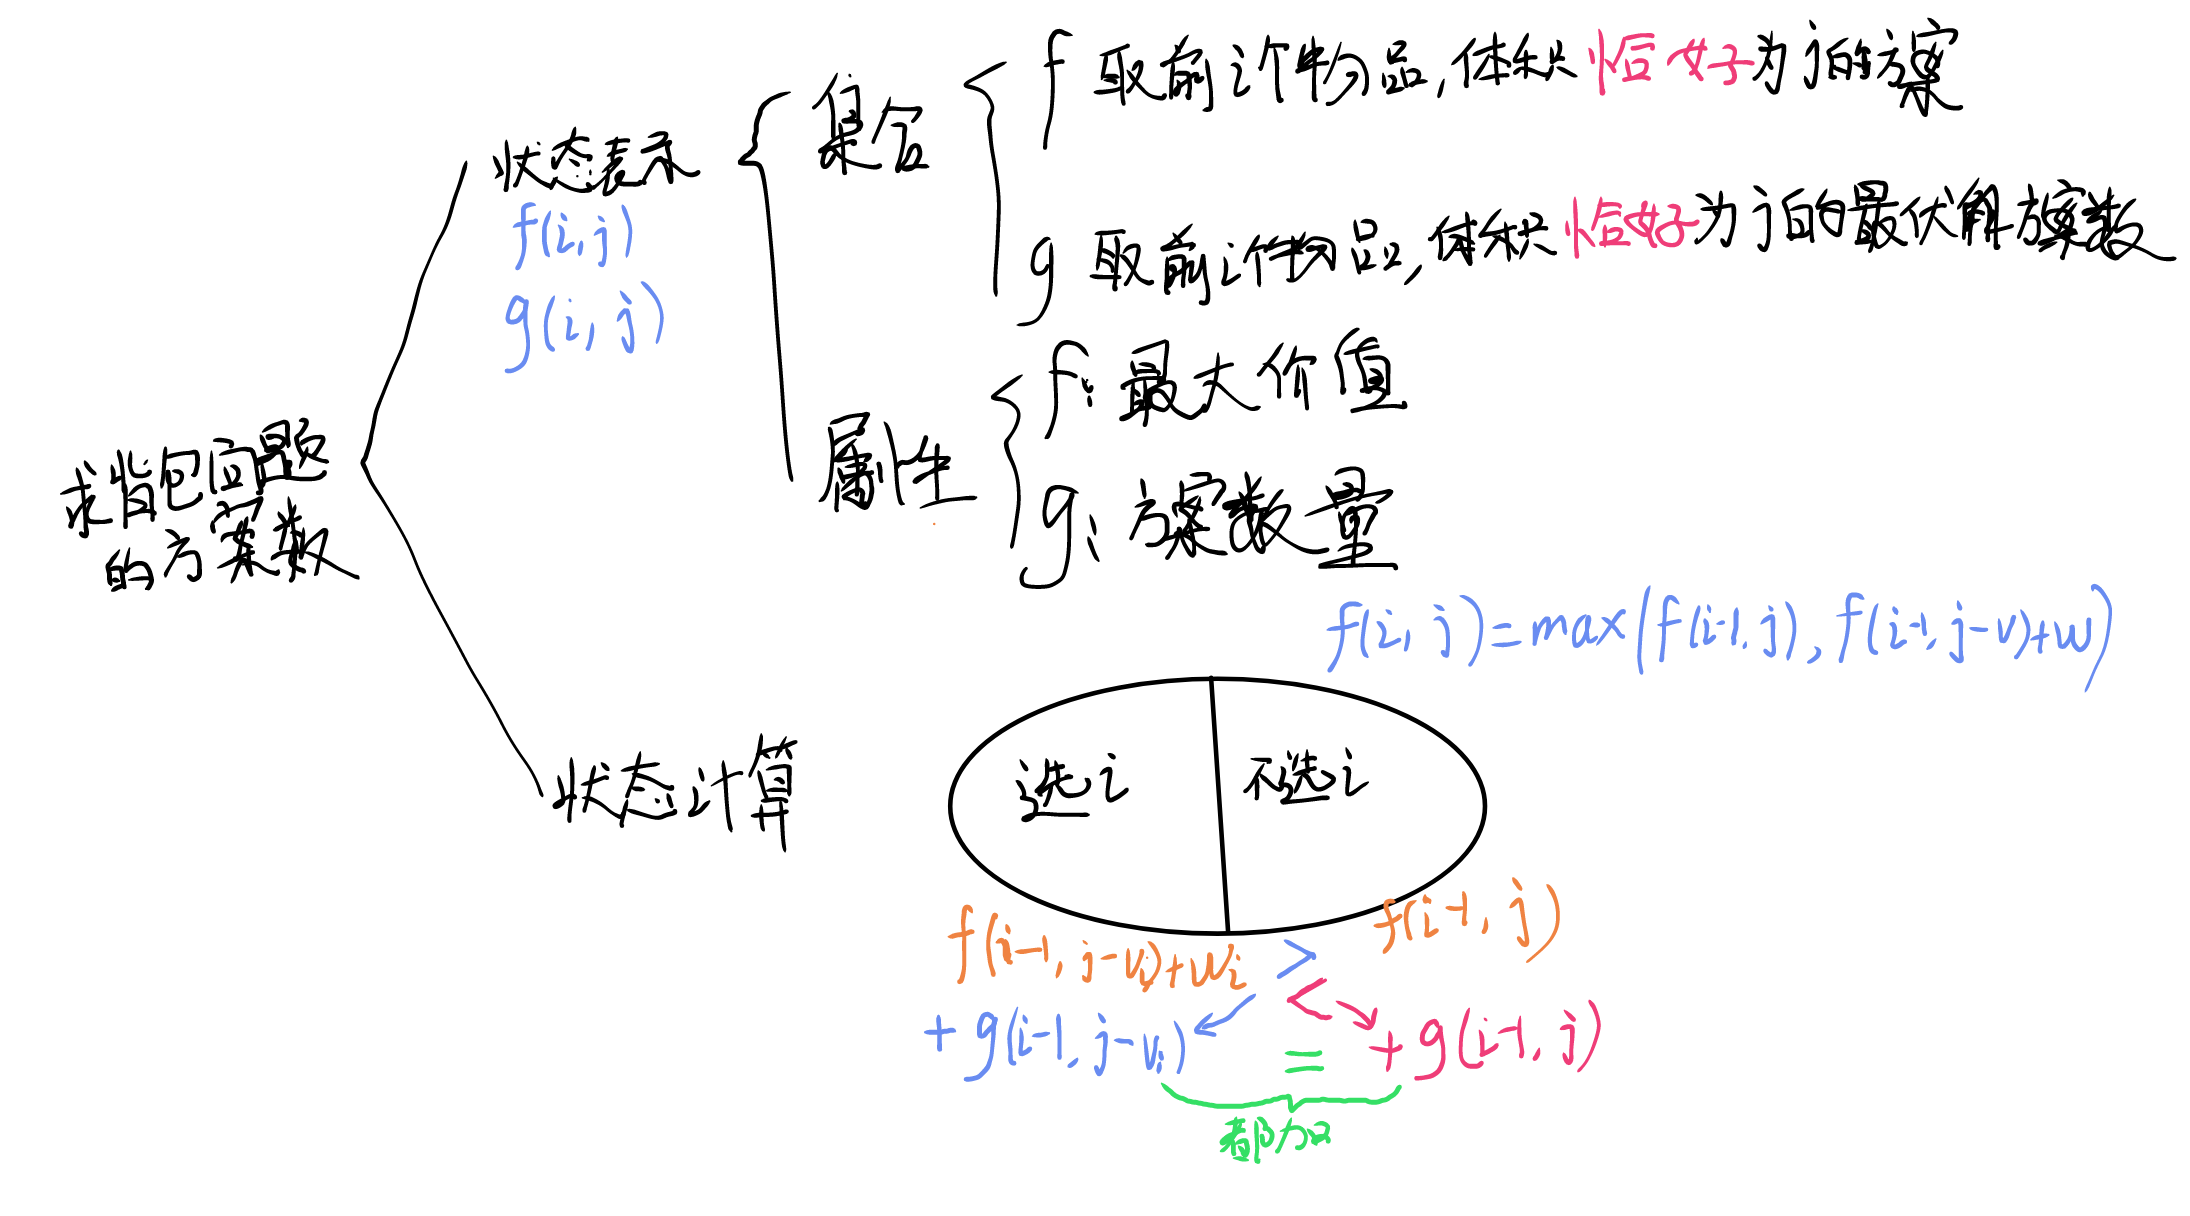 求背包问题
的方案数
状态表示
f(i,j)
g(i,j)
集合
f 取前i个物品,体积恰好为j的方案
g 取前i个物品,体积恰好为j的最优解方案数
属性
f: 最大价值
g: 方案数量
状态计算
f(i,j)=max(f(i-1,j),f(i-1,j-v)+w)
选i
不选i
f(i-1,j-vi)+wi > f(i-1,j)
<
+g(i-1,j-vi) = +g(i-1,j)
都加